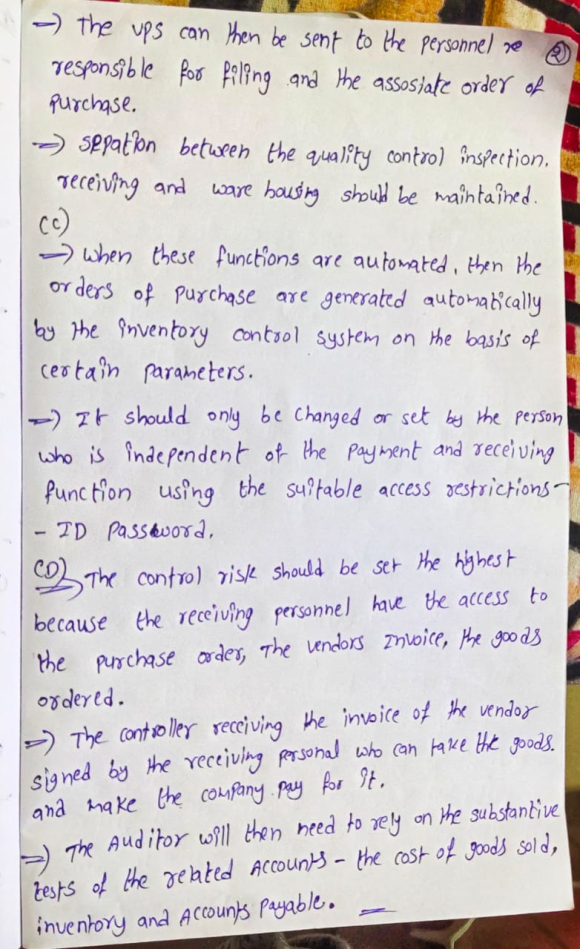 →) The ups can then be sent to the personnel re
②
responsible for filing and the assosiate order of
purchase.
→) sepation between the quality control inspection,
receiving and ware housing should be maintained.
(C)
→) when these functions are automated, then the
orders of purchase are generated automatically
by the inventory control system on the basis of
certain parameters.
→) It should only be changed or set by the person
who is independent of the payment and receiving
function using the suitable access restrictions -
- ID password.
(D) The control risk should be set the highest
because the receiving personnel have the access to
the purchase order, The vendors Invoice, the goods
ordered.
→) The controller receiving the invoice of the vendor
signed by the receiving personal who can take the goods.
and make the company pay for it.
→) The Auditor will then need to rely on the substantive
tests of the related Accounts - the cost of goods sold,
inventory and Accounts Payable.